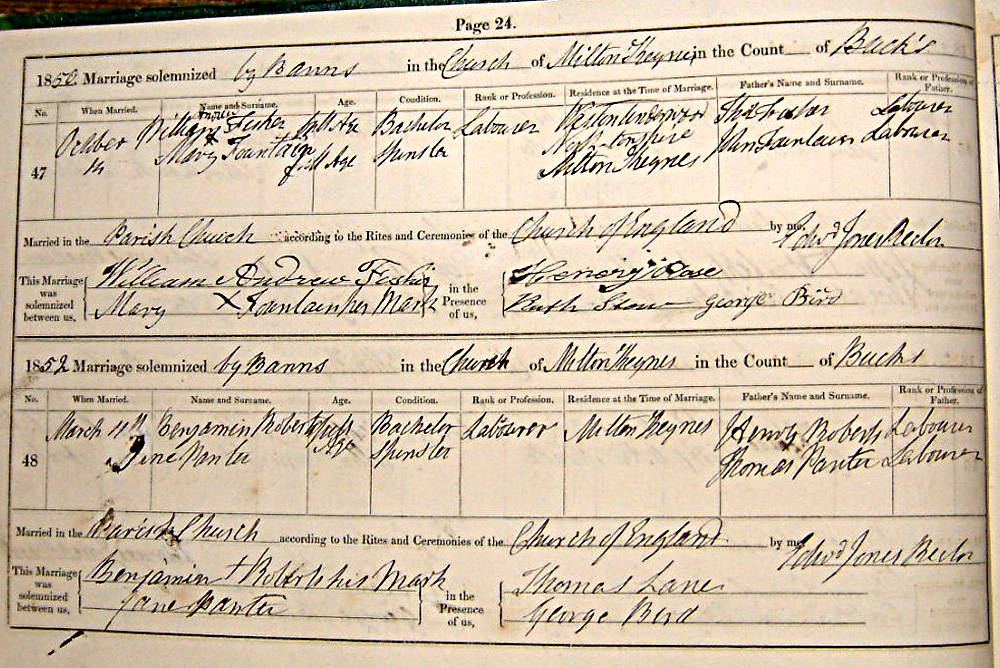 Page 24.
1852 Marriage solemnized by Banns in the Church of Milton Keynes in the Count of Buck's
No. When Married. Name and Surname. Age. Condition. Rank or Profession. Residence at the Time of Marriage. Father's Name and Surname. Rank or Profession of Father.
47 October William Andrew full Age Bachelor Labourer Labourer
Mary Fountain full Age Spinster Milton Keynes John Fountain Labourer
Married in the Parish Church according to the Rites and Ceremonies of the Church of England by me, Edwd Jones Rector
This Marriage was solemnized between us, William Andrew in the Presence of us, Henry Rose
Mary X Fountain her Mark Ruth George Bird
1852 Marriage solemnized by Banns in the Church of Milton Keynes in the Count of Bucks
No. When Married. Name and Surname. Age. Condition. Rank or Profession. Residence at the Time of Marriage. Father's Name and Surname. Rank or Profession of Father.
48 March Benjamin Roberts full Bachelor Labourer Milton Keynes Henry Roberts Labourer
Jane Panter Age Spinster Thomas Panter Labourer
Married in the Parish Church according to the Rites and Ceremonies of the Church of England by me, Edwd Jones Rector
This Marriage was solemnized between us, Benjamin + Roberts his Mark in the Presence of us, Thomas Lane
Jane Panter George Bird